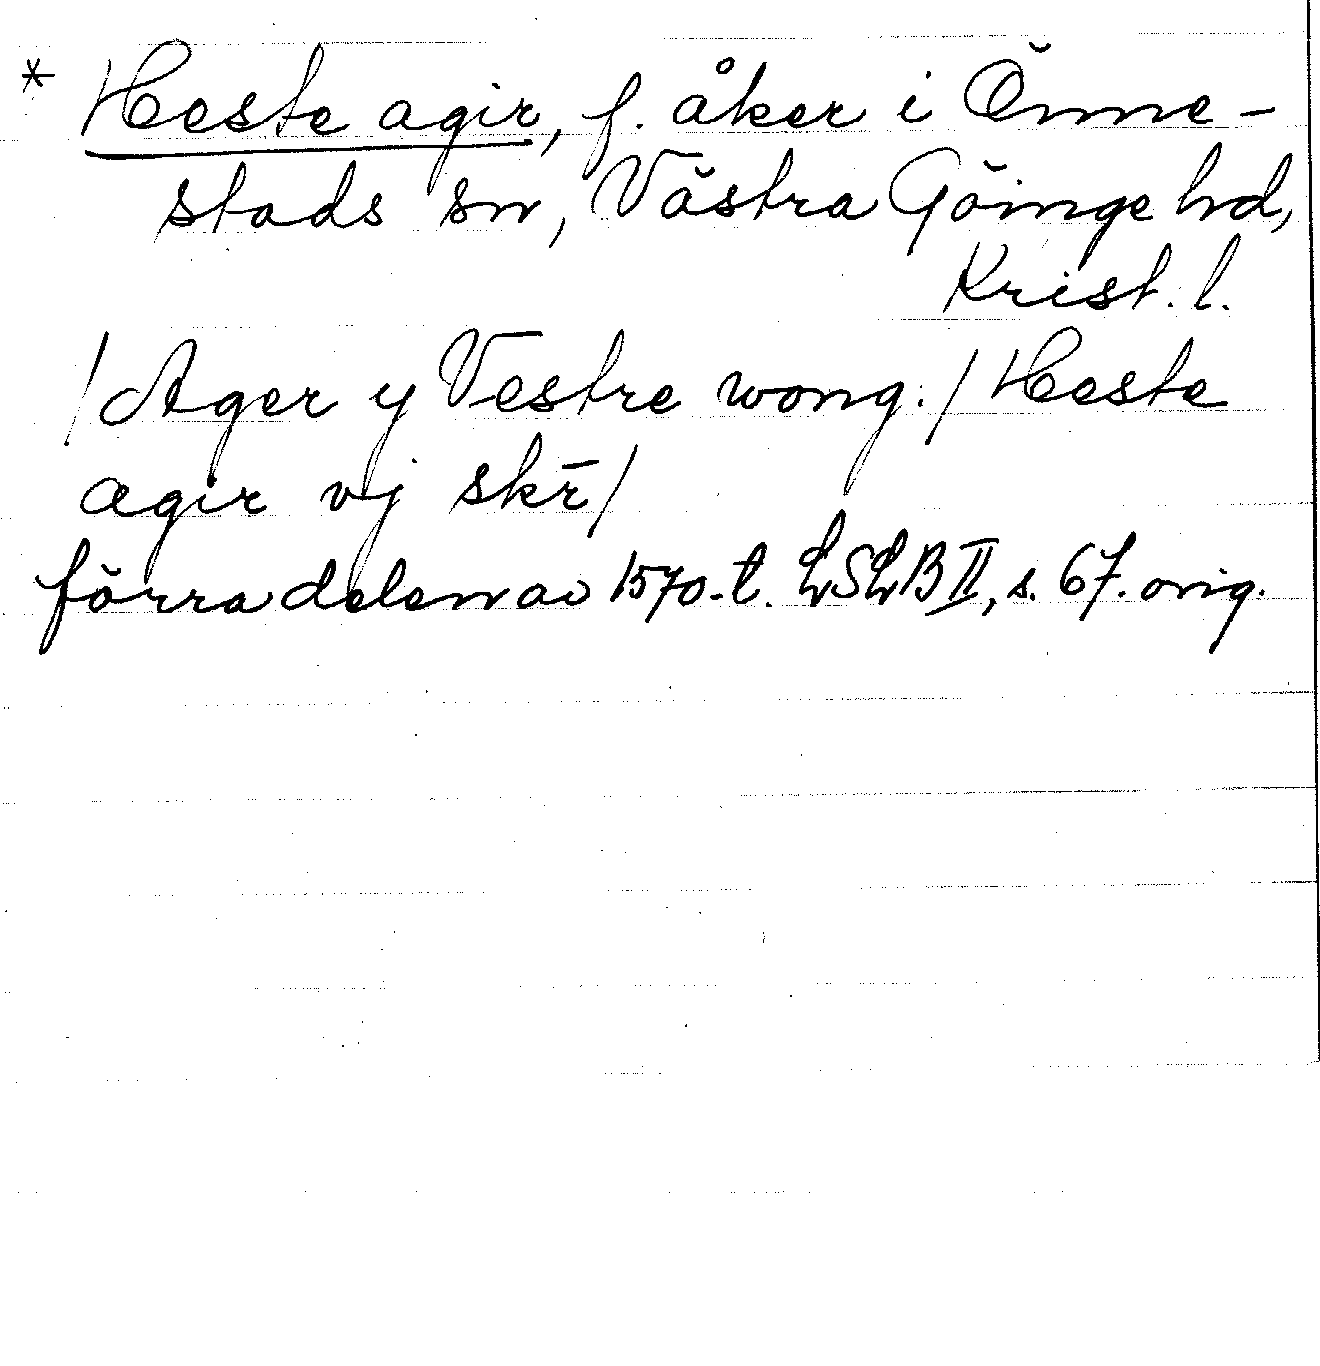 * Heste agir, f. åker i Önne-
stads sn, Västra Göinge hd,
Krist. l.
/Ager y Vestre wong:/ Heste
agir vj skr̄/
förra delen av 1570-t. LSLB II, s. 67. orig.